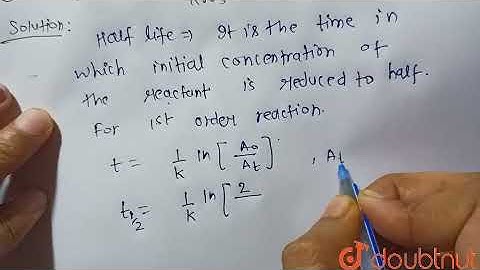 Solution:
Half life ⇒ It is the time in
which initial concentration of
the reactant is reduced to half.
For 1st order reaction.
t = 1/k ln [A₀/Aₜ] , Aₜ
t₁/₂ = 1/k ln [2/
doubtnut